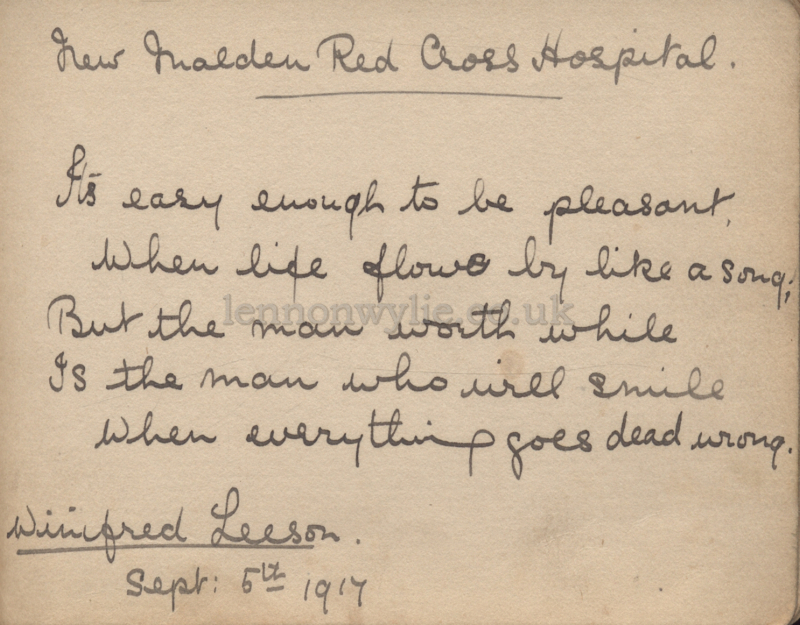 New Malden Red Cross Hospital.
It's easy enough to be pleasant,
When life flows by like a song;
But the man worth while
lennonwylie.co.uk
Is the man who will smile
When everything goes dead wrong.
Winifred Leeson.
Sept: 5th 1917